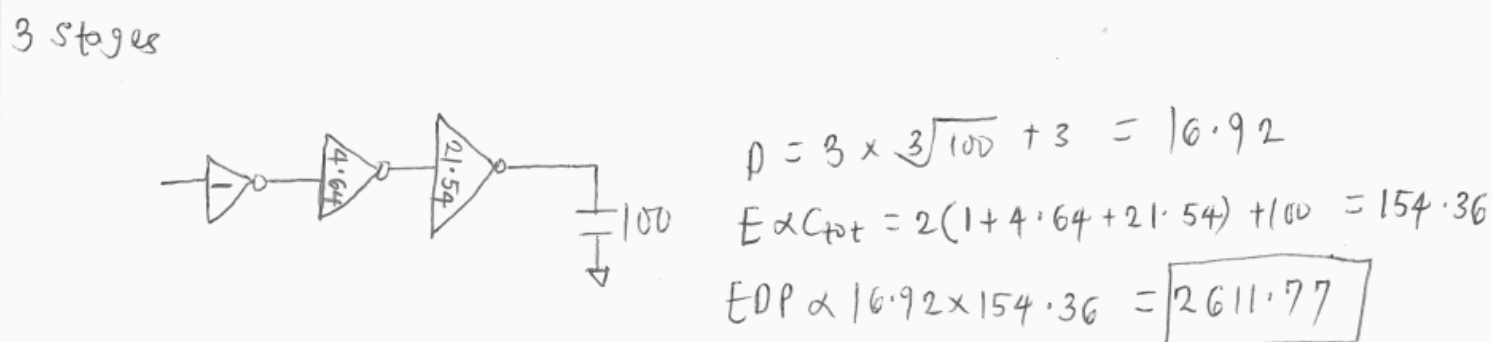 3 stages
1
4.64
21.54
100
D = 3 x 3√100 + 3 = 16.92
E ∝ Ctot = 2(1+4.64+21.54) +100 = 154.36
EDP ∝ 16.92x154.36 = 2611.77